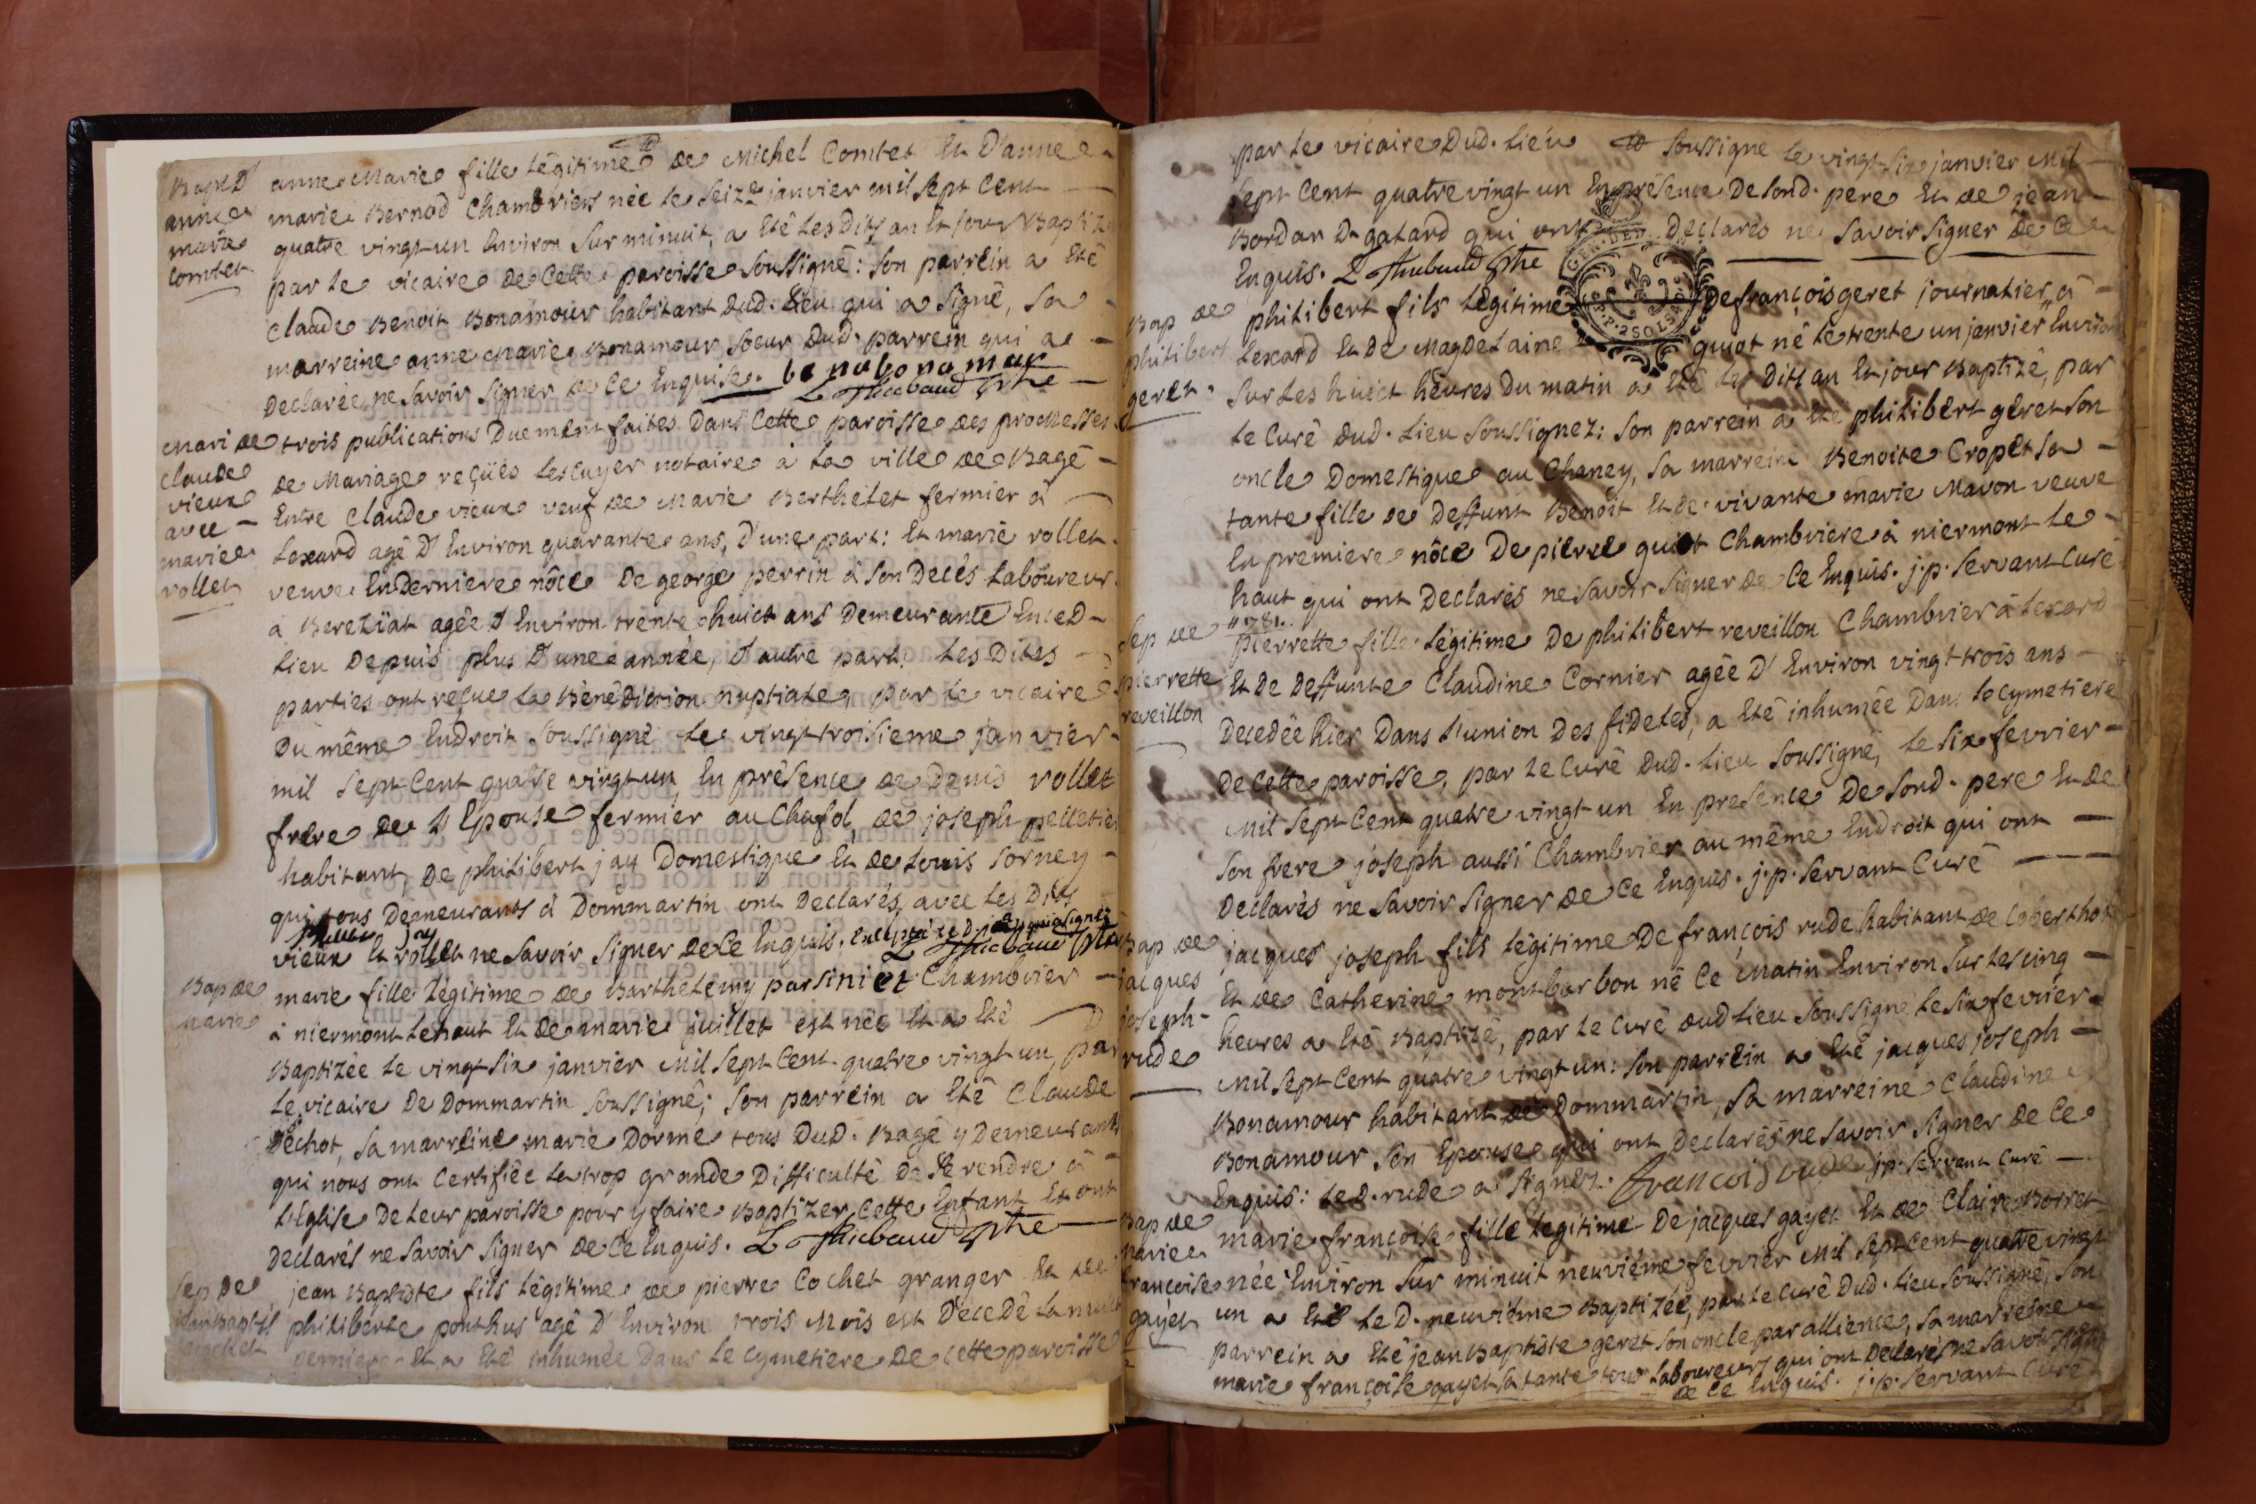 Bapt D'
anne
marie
combet
anne Marie fille légitime de Michel Combet Et D'anne
marie Bernod Chambriers née le Seize janvier mil sept Cent
quatre vingt un Environ Sur minuit, a Eté Les Dits an Et jour Baptizé
par le vicaire de Cette paroisse Soussigné: Son parrein a Eté
Claude Benoit Bonamour habitant dud. Lieu qui a Signé, Sa
marreine anne Marie Bonamour Soeur Dud. parrein qui a
Declarée ne Savoir Signer de Ce Enquise. benabonamur
L Thiebaud Ptre
Mari de
Claude
vieux
avec
marie
rollet
trois publications Duement faites Dans Cette paroisse des promesses
de Mariage reçües Lescuyer notaire à la ville de Bagé
Entre Claude vieux veuf de Marie Berthelet fermier à
Lexard agé D'Environ quarante ans, D'une part: Et marie rollet
veuve En Derniere nôce De george perrin à Son Decés Laboureur
à Bereziat agée D'Environ trente huict ans Demeurante En ceD
Lieu Depuis plus D'une année, D'autre part: Les Dites
parties ont reçue la Bénédiction nuptiale, par le vicaire
Du même Endroit Soussigné Le vingt troisieme janvier
mil Sept Cent quatre vingt un, En présence de Denis rollet
frere de D Epouse fermier au Chafol, de joseph pelletier
habitant, De philibert jay Domestique Et de Louis Sorney
qui tous Demeurants à Dommartin ont Declarés, avec Les Dits
vieux Et rollet ne Savoir Signer de Ce Enquis. Excepté le D. jay qui a Signéz
L Thiebaud Ptre
Bap de
marie
marie fille légitime de Barthelemy parsiniet Chambrier
à niermont Lehaut Et de marie juillet est née Et a Eté
Baptizée Le vingt Six janvier Mil Sept Cent quatre vingt un, par
le vicaire De Dommartin Soussigné; Son parrein a Eté Claude
Dechot, Sa marreine marie Dorme tous Dud. Bagé y Demeurants
qui nous ont Certifiée la trop grande Difficulté De Se rendre à
L'Eglise De Leur paroisse pour y faire Baptizer Cette Enfant Et ont
Declarés ne Savoir Signer de Ce Enquis. L Thiebaud Ptre
Sep De
jean Baptiste
Cochet
jean Baptiste fils légitime de pierre Cochet granger Et de
philiberte ponthus agé D'Environ trois Mois est Décedé La nuit
derniere Et a Eté inhumée Dans Le Cymetiere De Cette paroisse
par le vicaire Dud. Lieu Soussigné Le vingt Six janvier Mil
Sept Cent quatre vingt un En présence De Sond. pere Et de jean
Bordan D. galard qui ont Declarés ne Savoir Signer de Ce
Enquis. L Thiebaud Ptre
GEN. DE
P.P. 2 SOLS
Bap de
philibert
geret.
philibert fils légitime De françois geret journalier à
Lexard Et De Magdelaine guiot né le trente un janvier Environ
Sur Les huict hêures Du matin a Eté Les Dits an Et jour Baptizé, par
le Curé dud. Lieu Soussignez: Son parrein a Eté philibert geret Son
oncle Domestique au Chaney, Sa marreine Benoite Cropet Sa
tante fille de Deffunt Benoit Et de vivante marie Mavon veuve
En premiere nôce De pierre guiot Chambriere à niermont Le
haut qui ont Declarés ne Savoir Signer de Ce Enquis. j.p. Servant Curé
Sep de
pierrette
reveillon
1781.
Pierrette fille légitime De philibert reveillon Chambrier à Lexard
Et De Deffunte Claudine Cornier agée D'Environ vingt trois ans
Decedée hier Dans L'union Des fideles, a Eté inhumée Dans le Cymetiere
De Cette paroisse, par le Curé Dud. Lieu Soussigné, le Six fevrier
Mil Sept Cent quatre vingt un En presence De Sond. pere Et de
Son frere joseph aussi Chambrier au même Endroit qui ont
Declarés ne Savoir Signer de Ce Enquis. j.p. Servant Curé
Bap de
jacques
joseph
rude
jacques joseph fils légitime De françois rude habitant de Loberthot
Et de Catherine montbarbon né Ce Matin Environ Sur Les cinq
heures a Eté Baptizé, par le Curé dud Lieu Soussigné Le Six fevrier
Mil Sept Cent quatre vingt un: Son parrein a Eté jacques joseph
Bonamour habitant de Dommartin, Sa marreine Claudine
Bonamour Son Epouse qui ont Declarés ne Savoir Signer de Ce
Enquis: Le D. rude a Signéz. francois rude j.p. Servant Curé
Bap de
Marie
françoise
gayet
marie françoise fille légitime De jacques gayet Et de Claire Borret
née Environ Sur minuit neuviéme fevrier Mil Sept Cent quatre vingt
un a Eté Le D. neuviéme Baptizée, par le Curé Dud. Lieu Soussigné, Son
parrein a Eté jean Baptiste geret Son oncle par allience, Sa marreine
marie françoise gayet Sa tante tous Laboureurs qui ont Declarés ne Savoir Signer
de Ce Enquis. j.p. Servant Curé